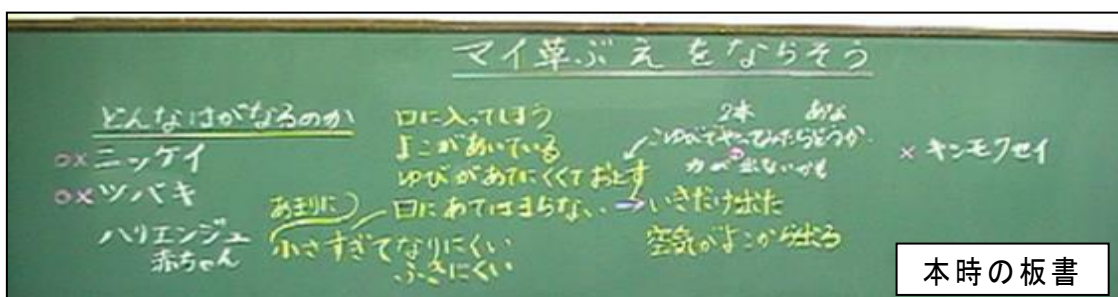 マイ草ぶえをならそう
どんなはがなるのか
○×ニッケイ
○×ツバキ
ハリエンジュ
赤ちゃん
口に入ってしまう
よこがあいている
ゆびがあてにくくておとす
あまりに
口にあてはまらない
小さすぎてなりにくい
ふきにくい
2本 あな
こゆびでやってみたらどうか
力が出ないかも
→いきだけ出た
空気がよこから出る
× キンモクセイ
本時の板書